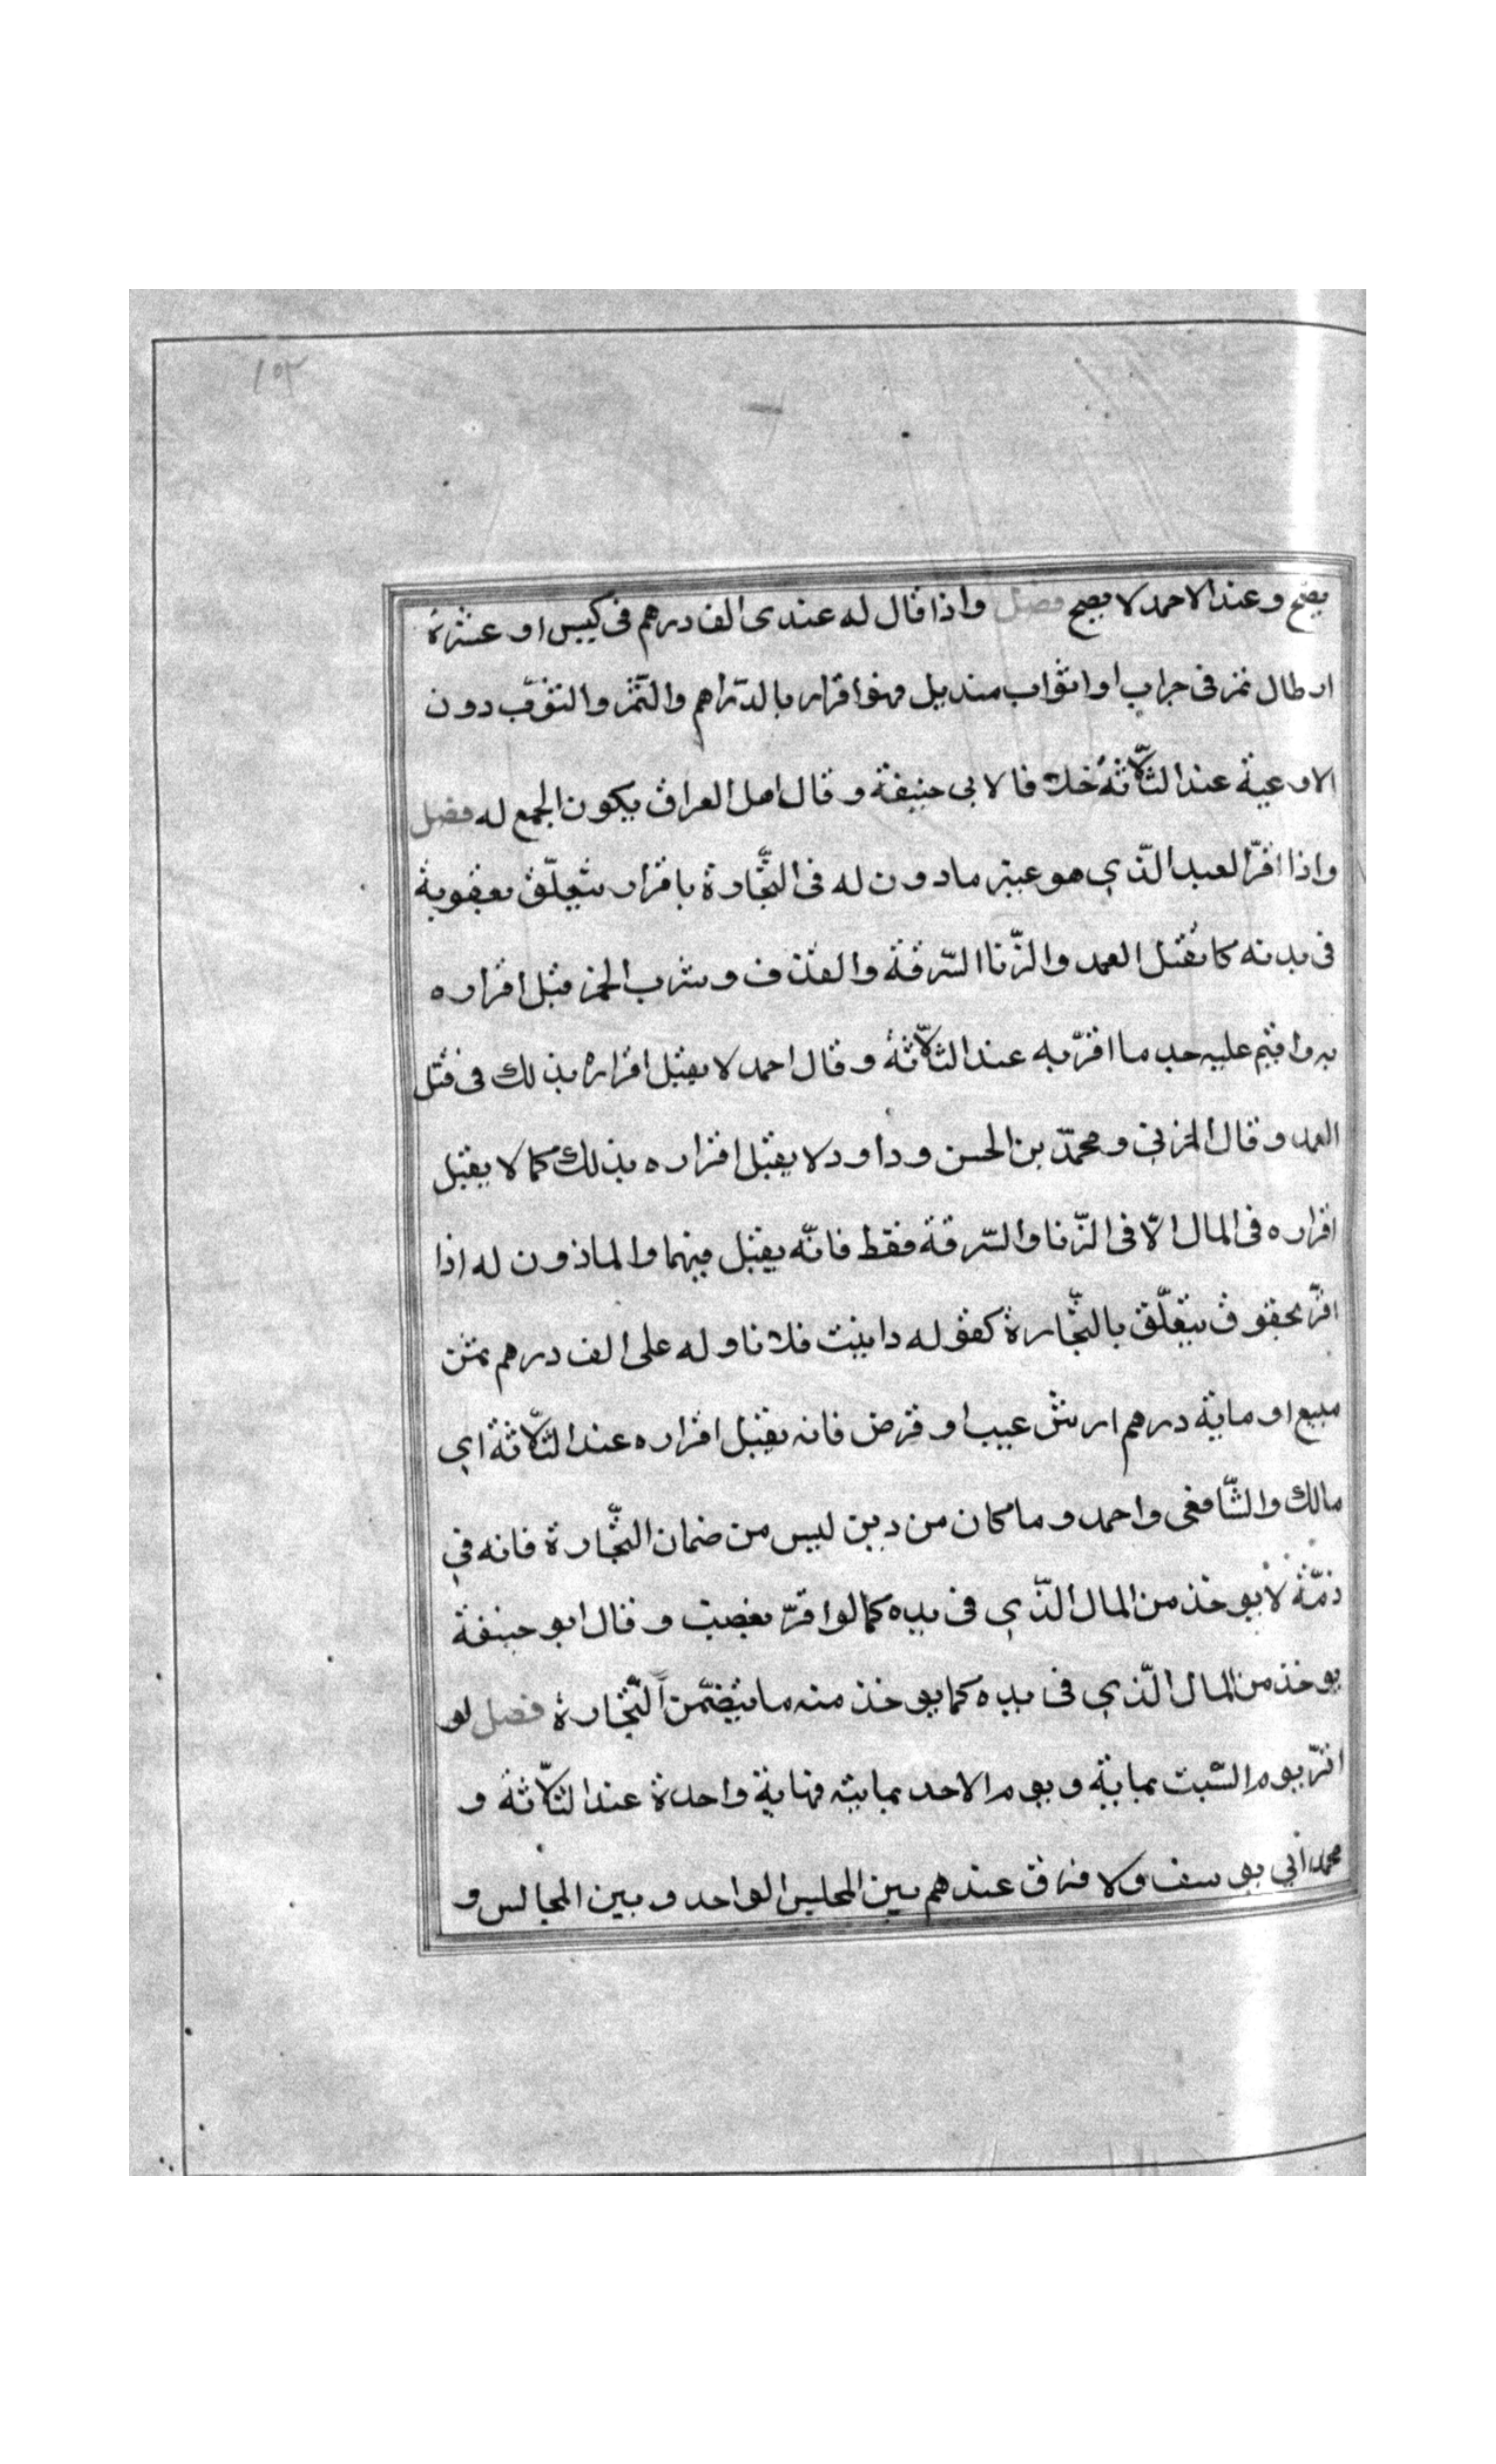 ١٥٢
يصح وعند الاحمد لا يصح فصل واذا قال له عندى الف درهم فى كيس او عشرة
ارطال تمر فى جراب او اثواب منديل فهو اقرار بالدراهم والتمر والثوب دون
الاوعية عند الثلاثة خلافا لابى حنيفة وقال اهل العراق يكون الجمع له فصل
واذا اقرّ العبد الّذي هو غير مادون له فى التّجارة باقرار يتعلّق بعقوبة
فى بدنه كا لقتل العمد والزّنا السّرقة والقذف وشرب الخمر قبل اقراره
به واقيم عليه حد ما اقرّ به عند الثلاثة وقال احمد لا يقبل اقراره بذلك فى قتل
العمد وقال المزني ومحمّد بن الحسن وداود لا يقبل اقراره بذلك كما لا يقبل
اقراره فى المال الّا فى الزّنا والسّرقة فقط فانّه يقبل فيهما والماذون له اذا
اقرّ بحقوق يتعلّق بالتّجارة كقوله داينت فلانا وله على الف درهم ثمن
مبيع او ماية درهم ارش عيب او قرض فانه يقبل اقراره عند الثّلاثة اي
مالك والشّافعى واحمد وما كان من دين ليس من ضمان التّجارة فانه في
ذمّته لا يوخذ من المال الّذي فى يده كما لو اقرّ بغصب وقال ابو حنيفة
يوخذ من المال الّذي فى يده كما يوخذ منه ما يتضمّن التّجارة فصل لو
اقرّ يوم السّبت بماية ويوم الاحد بماية فماية واحدة عند الثّلاثة و
محمد ابي يوسف ولا فرق عندهم بين المجلس الواحد وبين المجالس و